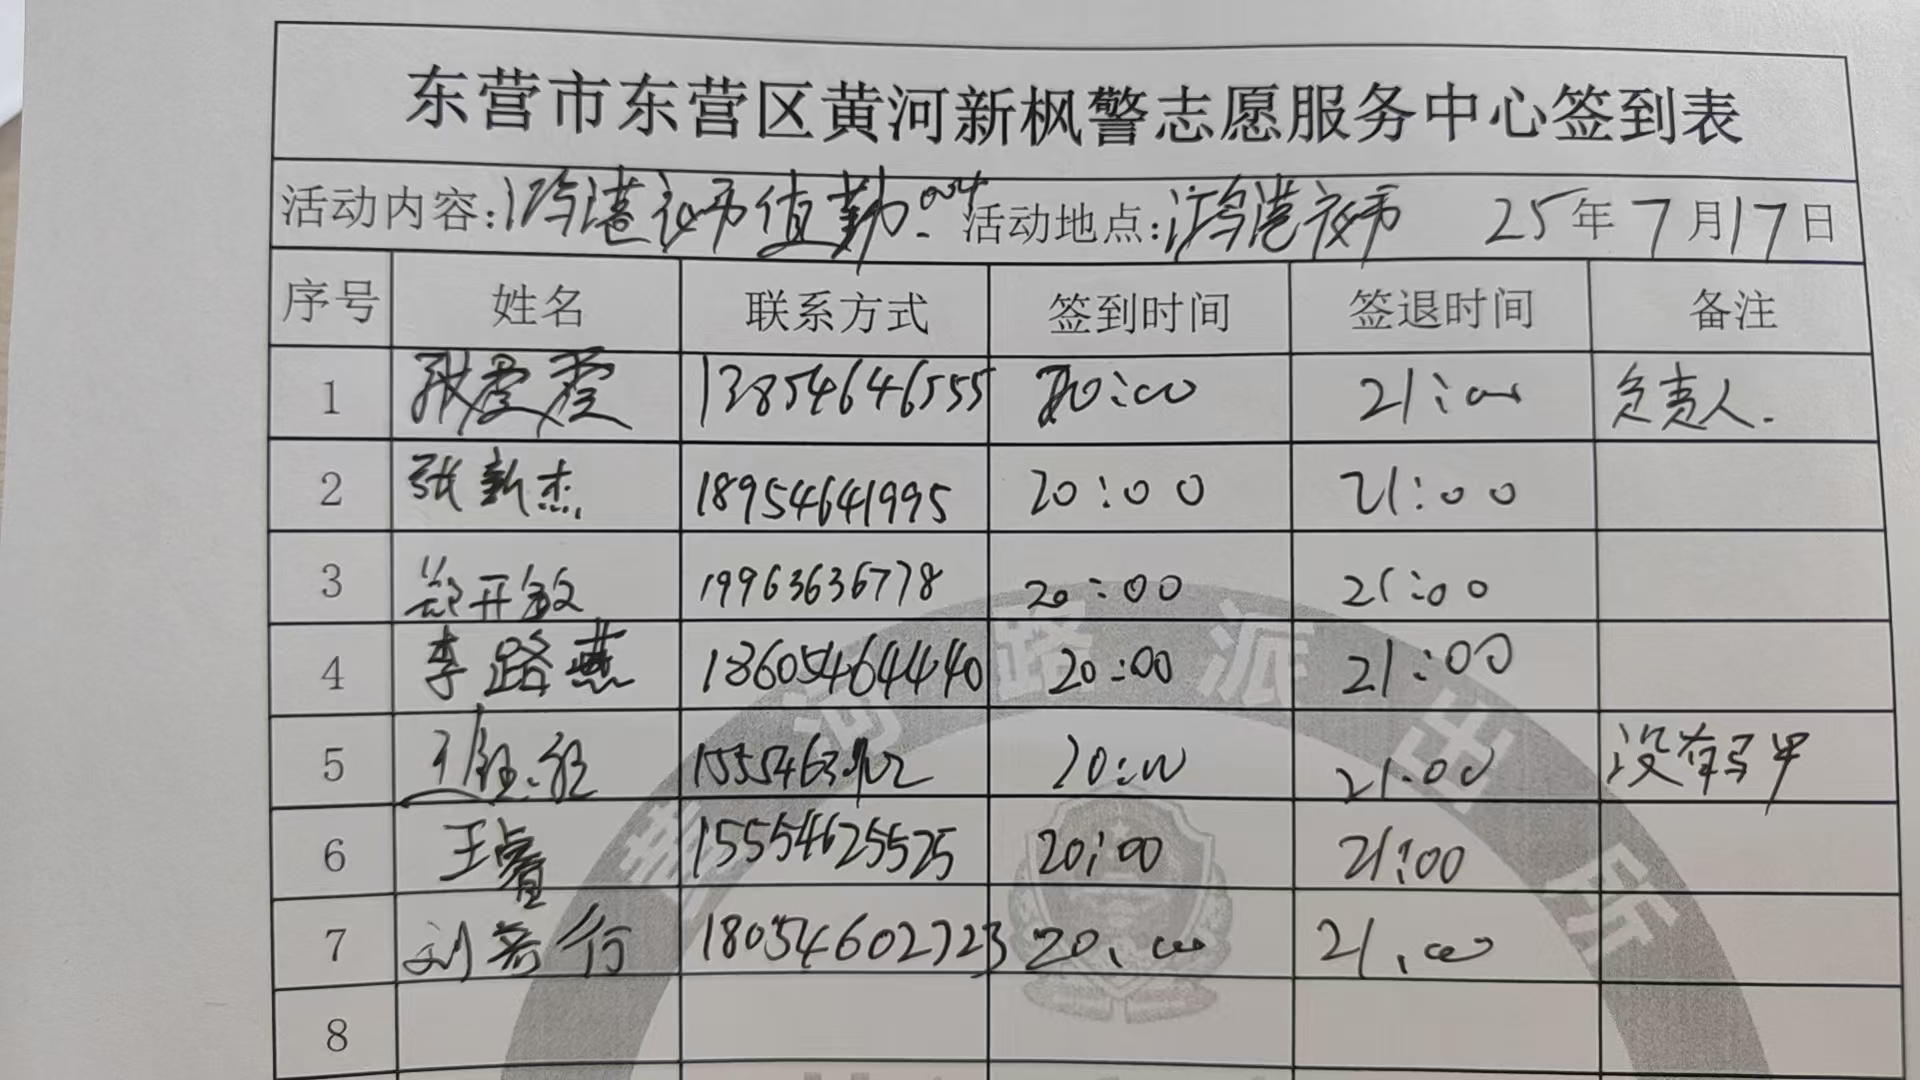 东营市东营区黄河新枫警志愿服务中心签到表
活动内容:鸿港夜市值勤. 活动地点:鸿港夜市 25年7月17日
序号 姓名 联系方式 签到时间 签退时间 备注
1 张爱爱 13854646555 20:00 21:00 负责人.
2 张新杰 18954641995 20:00 21:00
3 郑开敏 19963636778 20:00 21:00
4 李路燕 13605464440 20:00 21:00
5 20:00 21:00 没有马甲
6 王睿 15554625525 20:00 21:00
7 刘若行 18054602723 20:00 21:00
8
黄河路派出所